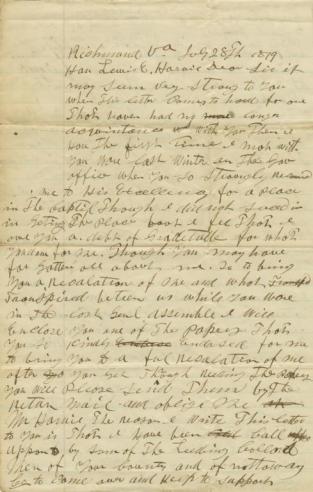 Richmond Va July 28th 1879
Hon Lewis E. Harvie Dear Sir it
may Seem very Strang to You
when The letter Comes to hand for one
That haven had no more longer
acquaintance with You Then i
Had The first Time i met with
You Were last Winter in The Gov
office when You So Strongly
me to His Excellency for a Place
in The Capitol Though i did not Succeed
in Geting The Place but i feel That i
owe You a debt of Gratitude for what
You don for me. Though You may have
for Gotten all about me. So to bring
You a Recalation of me and what
Transpired between us while You Were
in The last Genl assemble i Will
Enclose You one of The Papers That
You So Kindly endorsed for me
to bring You to a ful Recalation of me
after You Get Though Reading The Paper
You Will Please Send Them by The
Retun Mail and oblige Me
Mr Harvie The Reason i Write This letter
to You is That i Have been Call
uppon by Sum of The Leading Collord
Men of Your County and of Nottoway
Co to Come over and Help to Support